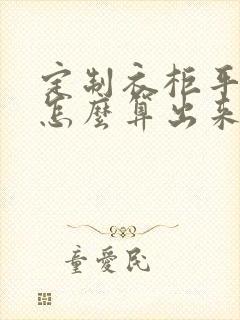 定制衣柜平
怎麼算出來
童愛民